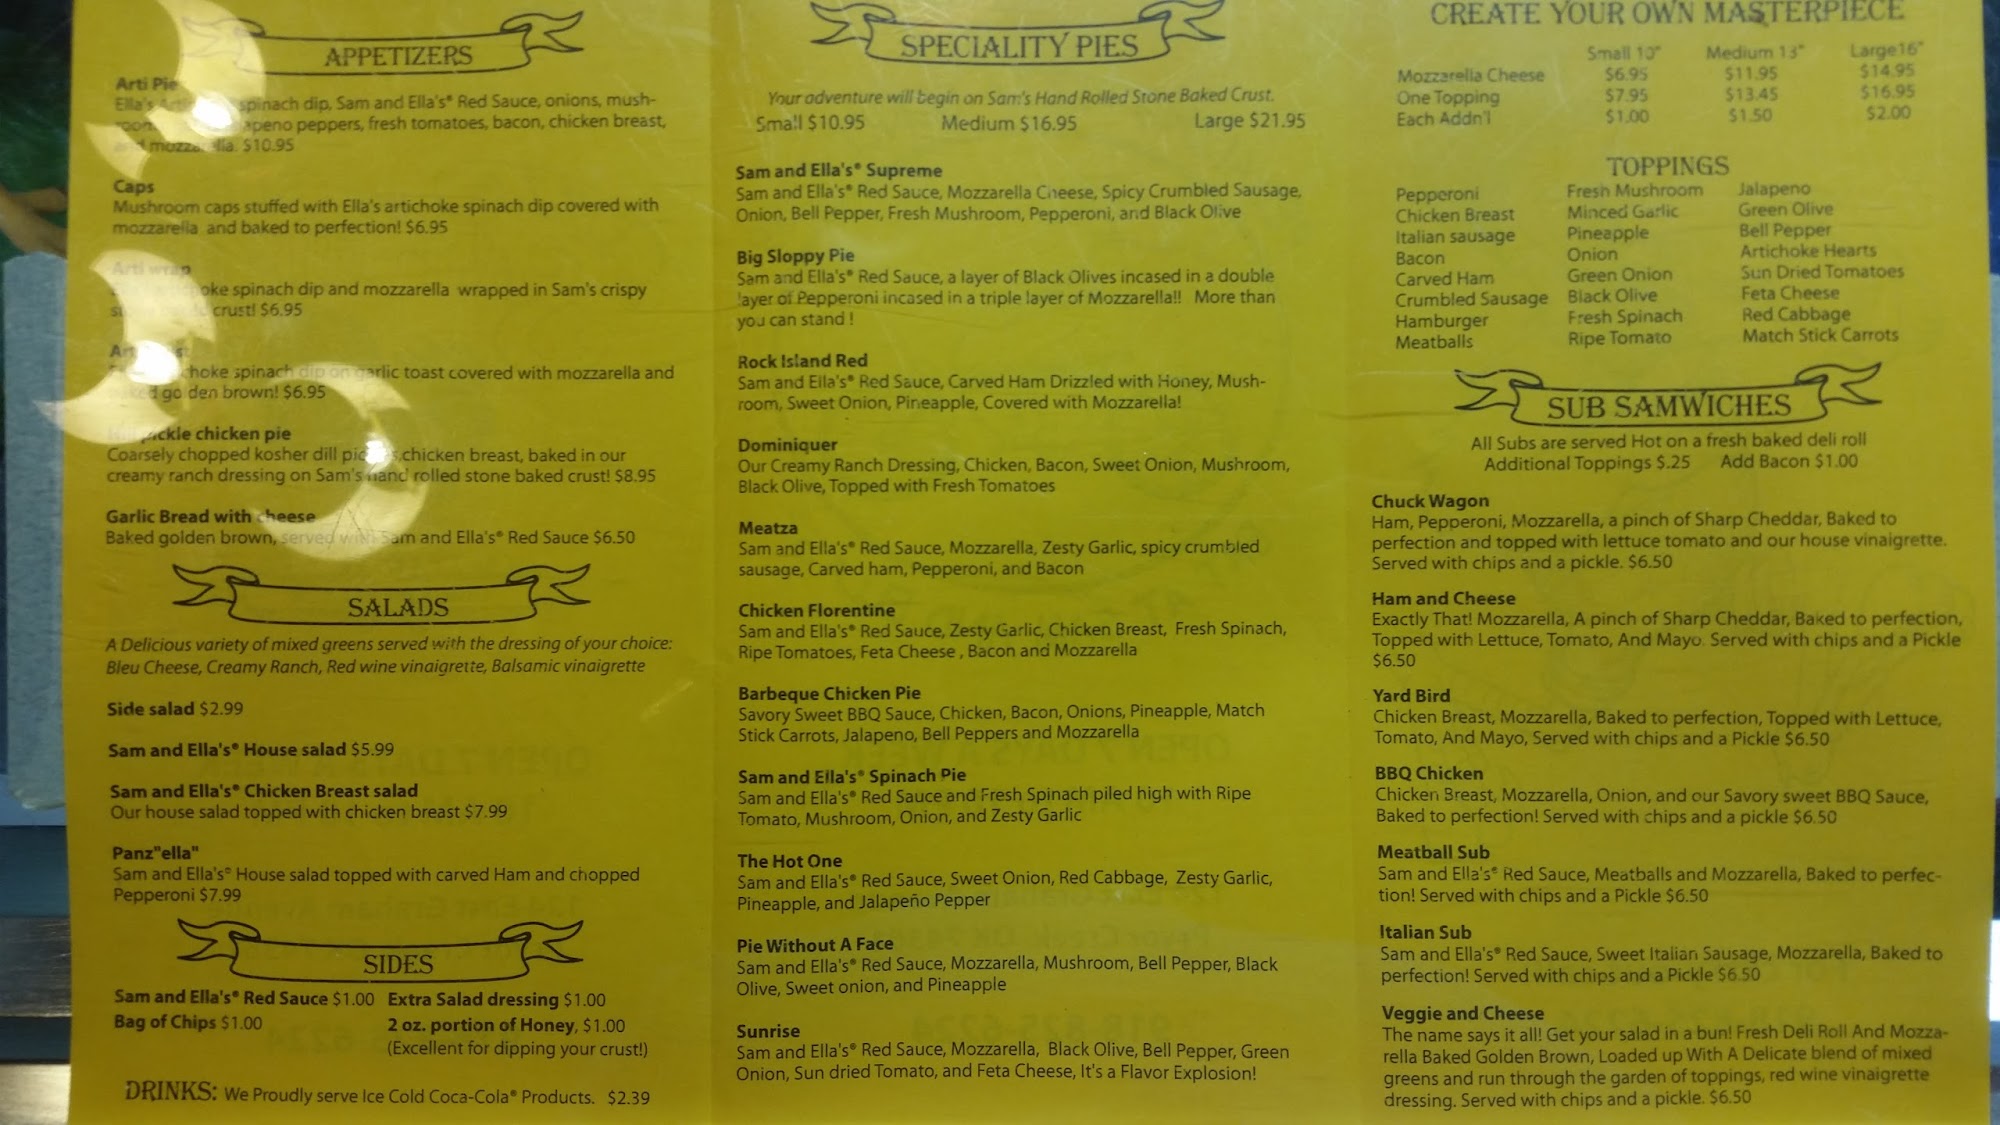 APPETIZERS
Arti Pie
Ella's spinach dip, Sam and Ella's® Red Sauce, onions, mush-
peppers, fresh tomatoes, bacon, chicken breast,
mozzarella. $10.95
Caps
Mushroom caps stuffed with Ella's artichoke spinach dip covered with
mozzarella and baked to perfection! $6.95
Arti wrap
spinach dip and mozzarella wrapped in Sam's crispy
crust! $6.95
spinach dip on garlic toast covered with mozzarella and
golden brown! $6.95
pickle chicken pie
Coarsely chopped kosher dill chicken breast, baked in our
creamy ranch dressing on Sam's hand rolled stone baked crust! $8.95
Garlic Bread with cheese
Baked golden brown, served with Sam and Ella's® Red Sauce $6.50
SALADS
A Delicious variety of mixed greens served with the dressing of your choice:
Bleu Cheese, Creamy Ranch, Red wine vinaigrette, Balsamic vinaigrette
Side salad $2.99
Sam and Ella's® House salad $5.99
Sam and Ella's® Chicken Breast salad
Our house salad topped with chicken breast $7.99
Panz"ella"
Sam and Ella's® House salad topped with carved Ham and chopped
Pepperoni $7.99
SIDES
Sam and Ella's® Red Sauce $1.00 Extra Salad dressing $1.00
Bag of Chips $1.00 2 oz. portion of Honey, $1.00
(Excellent for dipping your crust!)
DRINKS: We Proudly serve Ice Cold Coca-Cola® Products. $2.39
SPECIALITY PIES
Your adventure will begin on Sam's Hand Rolled Stone Baked Crust.
Small $10.95 Medium $16.95 Large $21.95
Sam and Ella's® Supreme
Sam and Ella's® Red Sauce, Mozzarella Cheese, Spicy Crumbled Sausage,
Onion, Bell Pepper, Fresh Mushroom, Pepperoni, and Black Olive
Big Sloppy Pie
Sam and Ella's® Red Sauce, a layer of Black Olives incased in a double
layer of Pepperoni incased in a triple layer of Mozzarella!! More than
you can stand !
Rock Island Red
Sam and Ella's® Red Sauce, Carved Ham Drizzled with Honey, Mush-
room, Sweet Onion, Pineapple, Covered with Mozzarella!
Dominiquer
Our Creamy Ranch Dressing, Chicken, Bacon, Sweet Onion, Mushroom,
Black Olive, Topped with Fresh Tomatoes
Meatza
Sam and Ella's® Red Sauce, Mozzarella, Zesty Garlic, spicy crumbled
sausage, Carved ham, Pepperoni, and Bacon
Chicken Florentine
Sam and Ella's® Red Sauce, Zesty Garlic, Chicken Breast, Fresh Spinach,
Ripe Tomatoes, Feta Cheese , Bacon and Mozzarella
Barbeque Chicken Pie
Savory Sweet BBQ Sauce, Chicken, Bacon, Onions, Pineapple, Match
Stick Carrots, Jalapeno, Bell Peppers and Mozzarella
Sam and Ella's® Spinach Pie
Sam and Ella's® Red Sauce and Fresh Spinach piled high with Ripe
Tomato, Mushroom, Onion, and Zesty Garlic
The Hot One
Sam and Ella's® Red Sauce, Sweet Onion, Red Cabbage, Zesty Garlic,
Pineapple, and Jalapeño Pepper
Pie Without A Face
Sam and Ella's® Red Sauce, Mozzarella, Mushroom, Bell Pepper, Black
Olive, Sweet onion, and Pineapple
Sunrise
Sam and Ella's® Red Sauce, Mozzarella, Black Olive, Bell Pepper, Green
Onion, Sun dried Tomato, and Feta Cheese, It's a Flavor Explosion!
CREATE YOUR OWN MASTERPIECE
Small 10" Medium 13" Large16"
Mozzarella Cheese $6.95 $11.95 $14.95
One Topping $7.95 $13.45 $16.95
Each Addn'l $1.00 $1.50 $2.00
TOPPINGS
Pepperoni Fresh Mushroom Jalapeno
Chicken Breast Minced Garlic Green Olive
Italian sausage Pineapple Bell Pepper
Bacon Onion Artichoke Hearts
Carved Ham Green Onion Sun Dried Tomatoes
Crumbled Sausage Black Olive Feta Cheese
Hamburger Fresh Spinach Red Cabbage
Meatballs Ripe Tomato Match Stick Carrots
SUB SAMWICHES
All Subs are served Hot on a fresh baked deli roll
Additional Toppings $.25 Add Bacon $1.00
Chuck Wagon
Ham, Pepperoni, Mozzarella, a pinch of Sharp Cheddar, Baked to
perfection and topped with lettuce tomato and our house vinaigrette.
Served with chips and a pickle. $6.50
Ham and Cheese
Exactly That! Mozzarella, A pinch of Sharp Cheddar, Baked to perfection,
Topped with Lettuce, Tomato, And Mayo. Served with chips and a Pickle
$6.50
Yard Bird
Chicken Breast, Mozzarella, Baked to perfection, Topped with Lettuce,
Tomato, And Mayo, Served with chips and a Pickle $6.50
BBQ Chicken
Chicken Breast, Mozzarella, Onion, and our Savory sweet BBQ Sauce,
Baked to perfection! Served with chips and a pickle $6.50
Meatball Sub
Sam and Ella's® Red Sauce, Meatballs and Mozzarella, Baked to perfec-
tion! Served with chips and a Pickle $6.50
Italian Sub
Sam and Ella's® Red Sauce, Sweet Italian Sausage, Mozzarella, Baked to
perfection! Served with chips and a Pickle $6.50
Veggie and Cheese
The name says it all! Get your salad in a bun! Fresh Deli Roll And Mozza-
rella Baked Golden Brown, Loaded up With A Delicate blend of mixed
greens and run through the garden of toppings, red wine vinaigrette
dressing. Served with chips and a pickle. $6.50